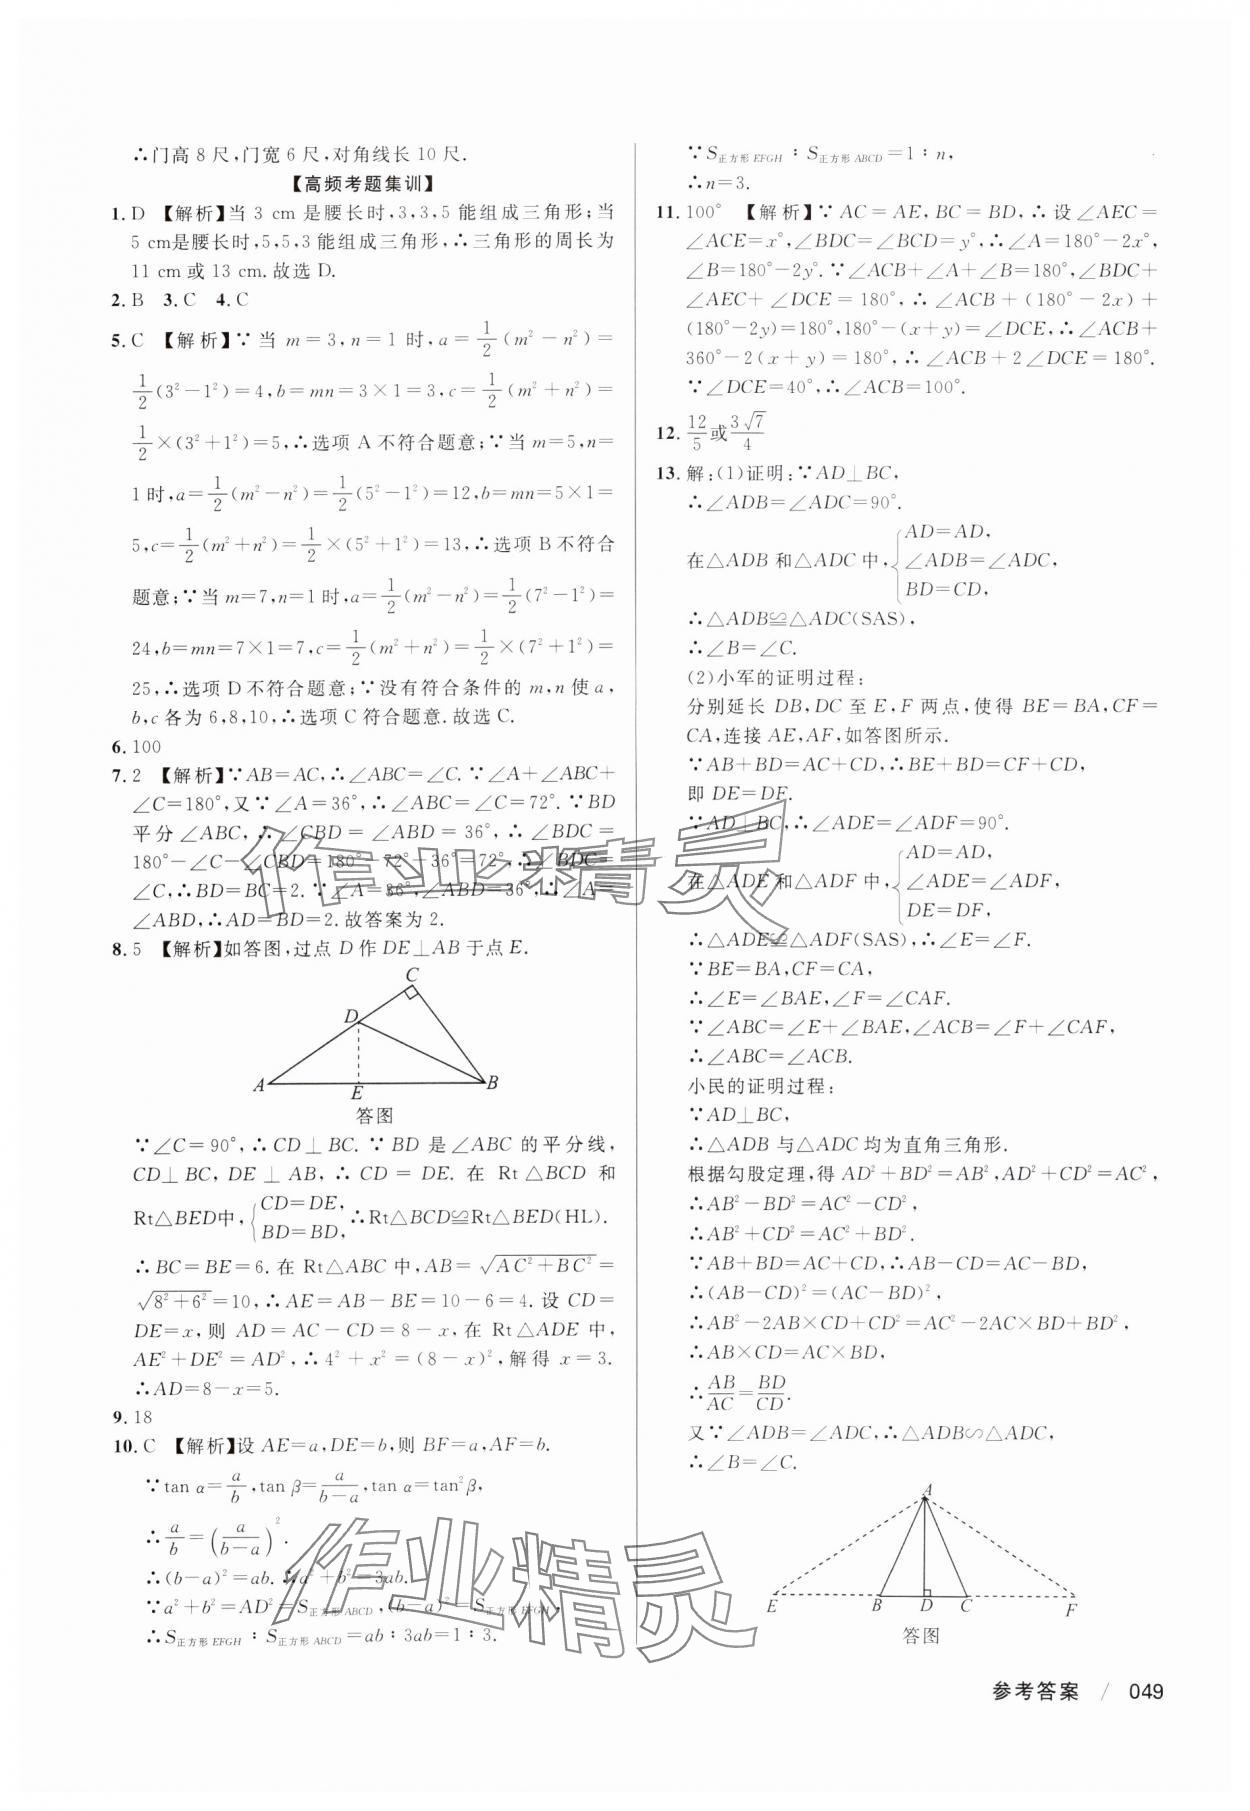 ∴门高 8 尺,门宽 6 尺,对角线长 10 尺.
【高频考题集训】
1. D 【解析】当 3 cm 是腰长时,3,3,5 能组成三角形;当
5 cm是腰长时,5,5,3能组成三角形,∴三角形的周长为
11 cm 或 13 cm.故选 D.
2. B 3. C 4. C
5. C 【解析】∵当 m=3,n=1 时,a=1/2(m²-n²)=
1/2(3²-1²)=4,b=mn=3×1=3,c=1/2(m²+n²)=
1/2×(3²+1²)=5,∴选项 A 不符合题意;∵当 m=5,n=
1时,a=1/2(m²-n²)=1/2(5²-1²)=12,b=mn=5×1=
5,c=1/2(m²+n²)=1/2×(5²+1²)=13,∴选项 B不符合
题意;∵当 m=7,n=1时,a=1/2(m²-n²)=1/2(7²-1²)=
24,b=mn=7×1=7,c=1/2(m²+n²)=1/2×(7²+1²)=
25,∴选项 D 不符合题意;∵没有符合条件的 m,n 使 a,
b,c各为 6,8,10,∴选项 C 符合题意.故选 C.
6. 100
7. 2 【解析】∵AB=AC,∴∠ABC=∠C.∵∠A+∠ABC+
∠C=180°,又∵∠A=36°,∴∠ABC=∠C=72°.∵BD
平分∠ABC,∴∠CBD=∠ABD=36°,∴∠BDC=
180°-∠C-∠CBD=180°-72°-36°=72°,∴∠BDC=
∠C,∴BD=BC=2.∵∠A=36°,∠ABD=36°,∴∠A=
∠ABD,∴AD=BD=2.故答案为 2.
8. 5 【解析】如答图,过点 D 作 DE⊥AB 于点 E.
C
D
A
E
B
答图
∵∠C=90°,∴CD⊥BC.∵BD 是∠ABC 的平分线,
CD⊥BC,DE⊥AB,∴CD=DE.在 Rt△BCD 和
Rt△BED中,{CD=DE, BD=BD,∴Rt△BCD≌Rt△BED(HL).
∴BC=BE=6.在 Rt△ABC 中,AB=√(AC²+BC²)=
√(8²+6²)=10,∴AE=AB-BE=10-6=4.设 CD=
DE=x,则 AD=AC-CD=8-x,在 Rt△ADE 中,
AE²+DE²=AD²,∴4²+x²=(8-x)²,解得 x=3.
∴AD=8-x=5.
9. 18
10. C 【解析】设 AE=a,DE=b,则 BF=a,AF=b.
∵tan α=a/b,tan β=a/(b-a),tan α=tan²β,
∴a/b=(a/(b-a))².
∴(b-a)²=ab.∴a²+b²=3ab.
∵a²+b²=AD²=S正方形ABCD,(b-a)²=S正方形EFGH,
∴S正方形EFGH∶S正方形ABCD=ab∶3ab=1∶3.
∵S正方形EFGH∶S正方形ABCD=1∶n,
∴n=3.
11. 100° 【解析】∵AC=AE,BC=BD,∴设∠AEC=
∠ACE=x°,∠BDC=∠BCD=y°,∴∠A=180°-2x°,
∠B=180°-2y°.∵∠ACB+∠A+∠B=180°,∠BDC+
∠AEC+∠DCE=180°,∴∠ACB+(180°-2x)+
(180°-2y)=180°,180°-(x+y)=∠DCE,∴∠ACB+
360°-2(x+y)=180°,∴∠ACB+2∠DCE=180°.
∵∠DCE=40°,∴∠ACB=100°.
12. 12/5或3√7/4
13. 解:(1)证明:∵AD⊥BC,
∴∠ADB=∠ADC=90°.
在△ADB 和△ADC 中,{AD=AD, ∠ADB=∠ADC, BD=CD,
∴△ADB≌△ADC(SAS),
∴∠B=∠C.
(2)小军的证明过程:
分别延长 DB,DC 至 E,F 两点,使得 BE=BA,CF=
CA,连接 AE,AF,如答图所示.
∵AB+BD=AC+CD,∴BE+BD=CF+CD,
即 DE=DF.
∵AD⊥BC,∴∠ADE=∠ADF=90°.
在△ADE 和△ADF 中,{AD=AD, ∠ADE=∠ADF, DE=DF,
∴△ADE≌△ADF(SAS),∴∠E=∠F.
∵BE=BA,CF=CA,
∴∠E=∠BAE,∠F=∠CAF.
∵∠ABC=∠E+∠BAE,∠ACB=∠F+∠CAF,
∴∠ABC=∠ACB.
小民的证明过程:
∵AD⊥BC,
∴△ADB 与△ADC 均为直角三角形.
根据勾股定理,得 AD²+BD²=AB²,AD²+CD²=AC²,
∴AB²-BD²=AC²-CD²,
∴AB²+CD²=AC²+BD².
∵AB+BD=AC+CD,∴AB-CD=AC-BD,
∴(AB-CD)²=(AC-BD)²,
∴AB²-2AB×CD+CD²=AC²-2AC×BD+BD²,
∴AB×CD=AC×BD,
∴AB/AC=BD/CD.
又∵∠ADB=∠ADC,∴△ADB∽△ADC,
∴∠B=∠C.
A
E B D C F
答图
参考答案 / 049
作业精灵
作业精灵